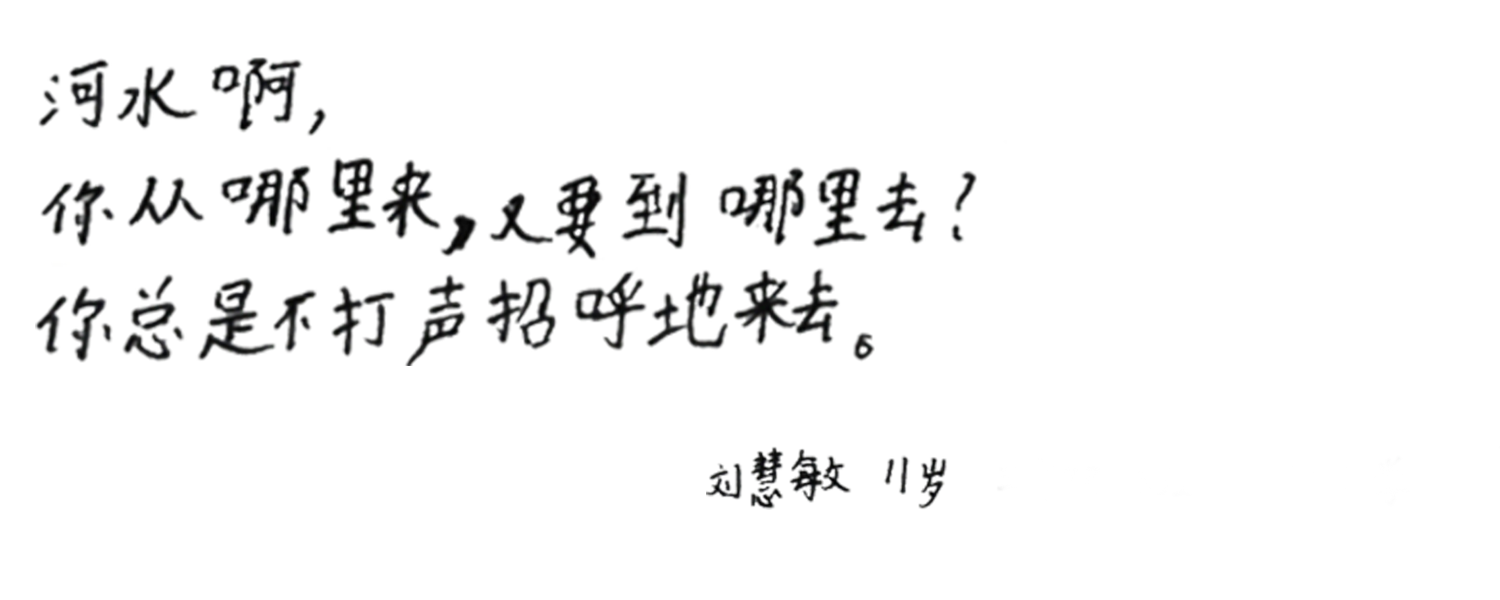 河水啊,
你从哪里来,又要到哪里去?
你总是不打声招呼地来去。
刘慧敏 11岁